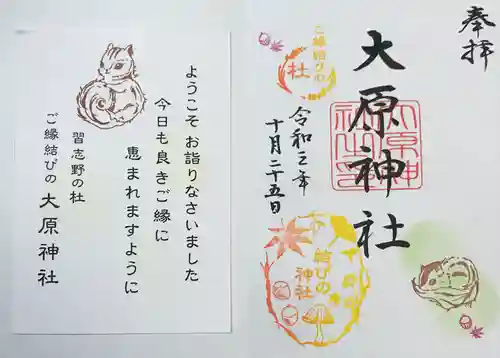 ようこそ お詣りなさいました
今日も良きご縁に
恵まれますように
習志野の杜
ご縁結びの 大原神社
奉拝
大原神社
ご縁結びの
社
令和三年
十月二十五日
結びの
神社